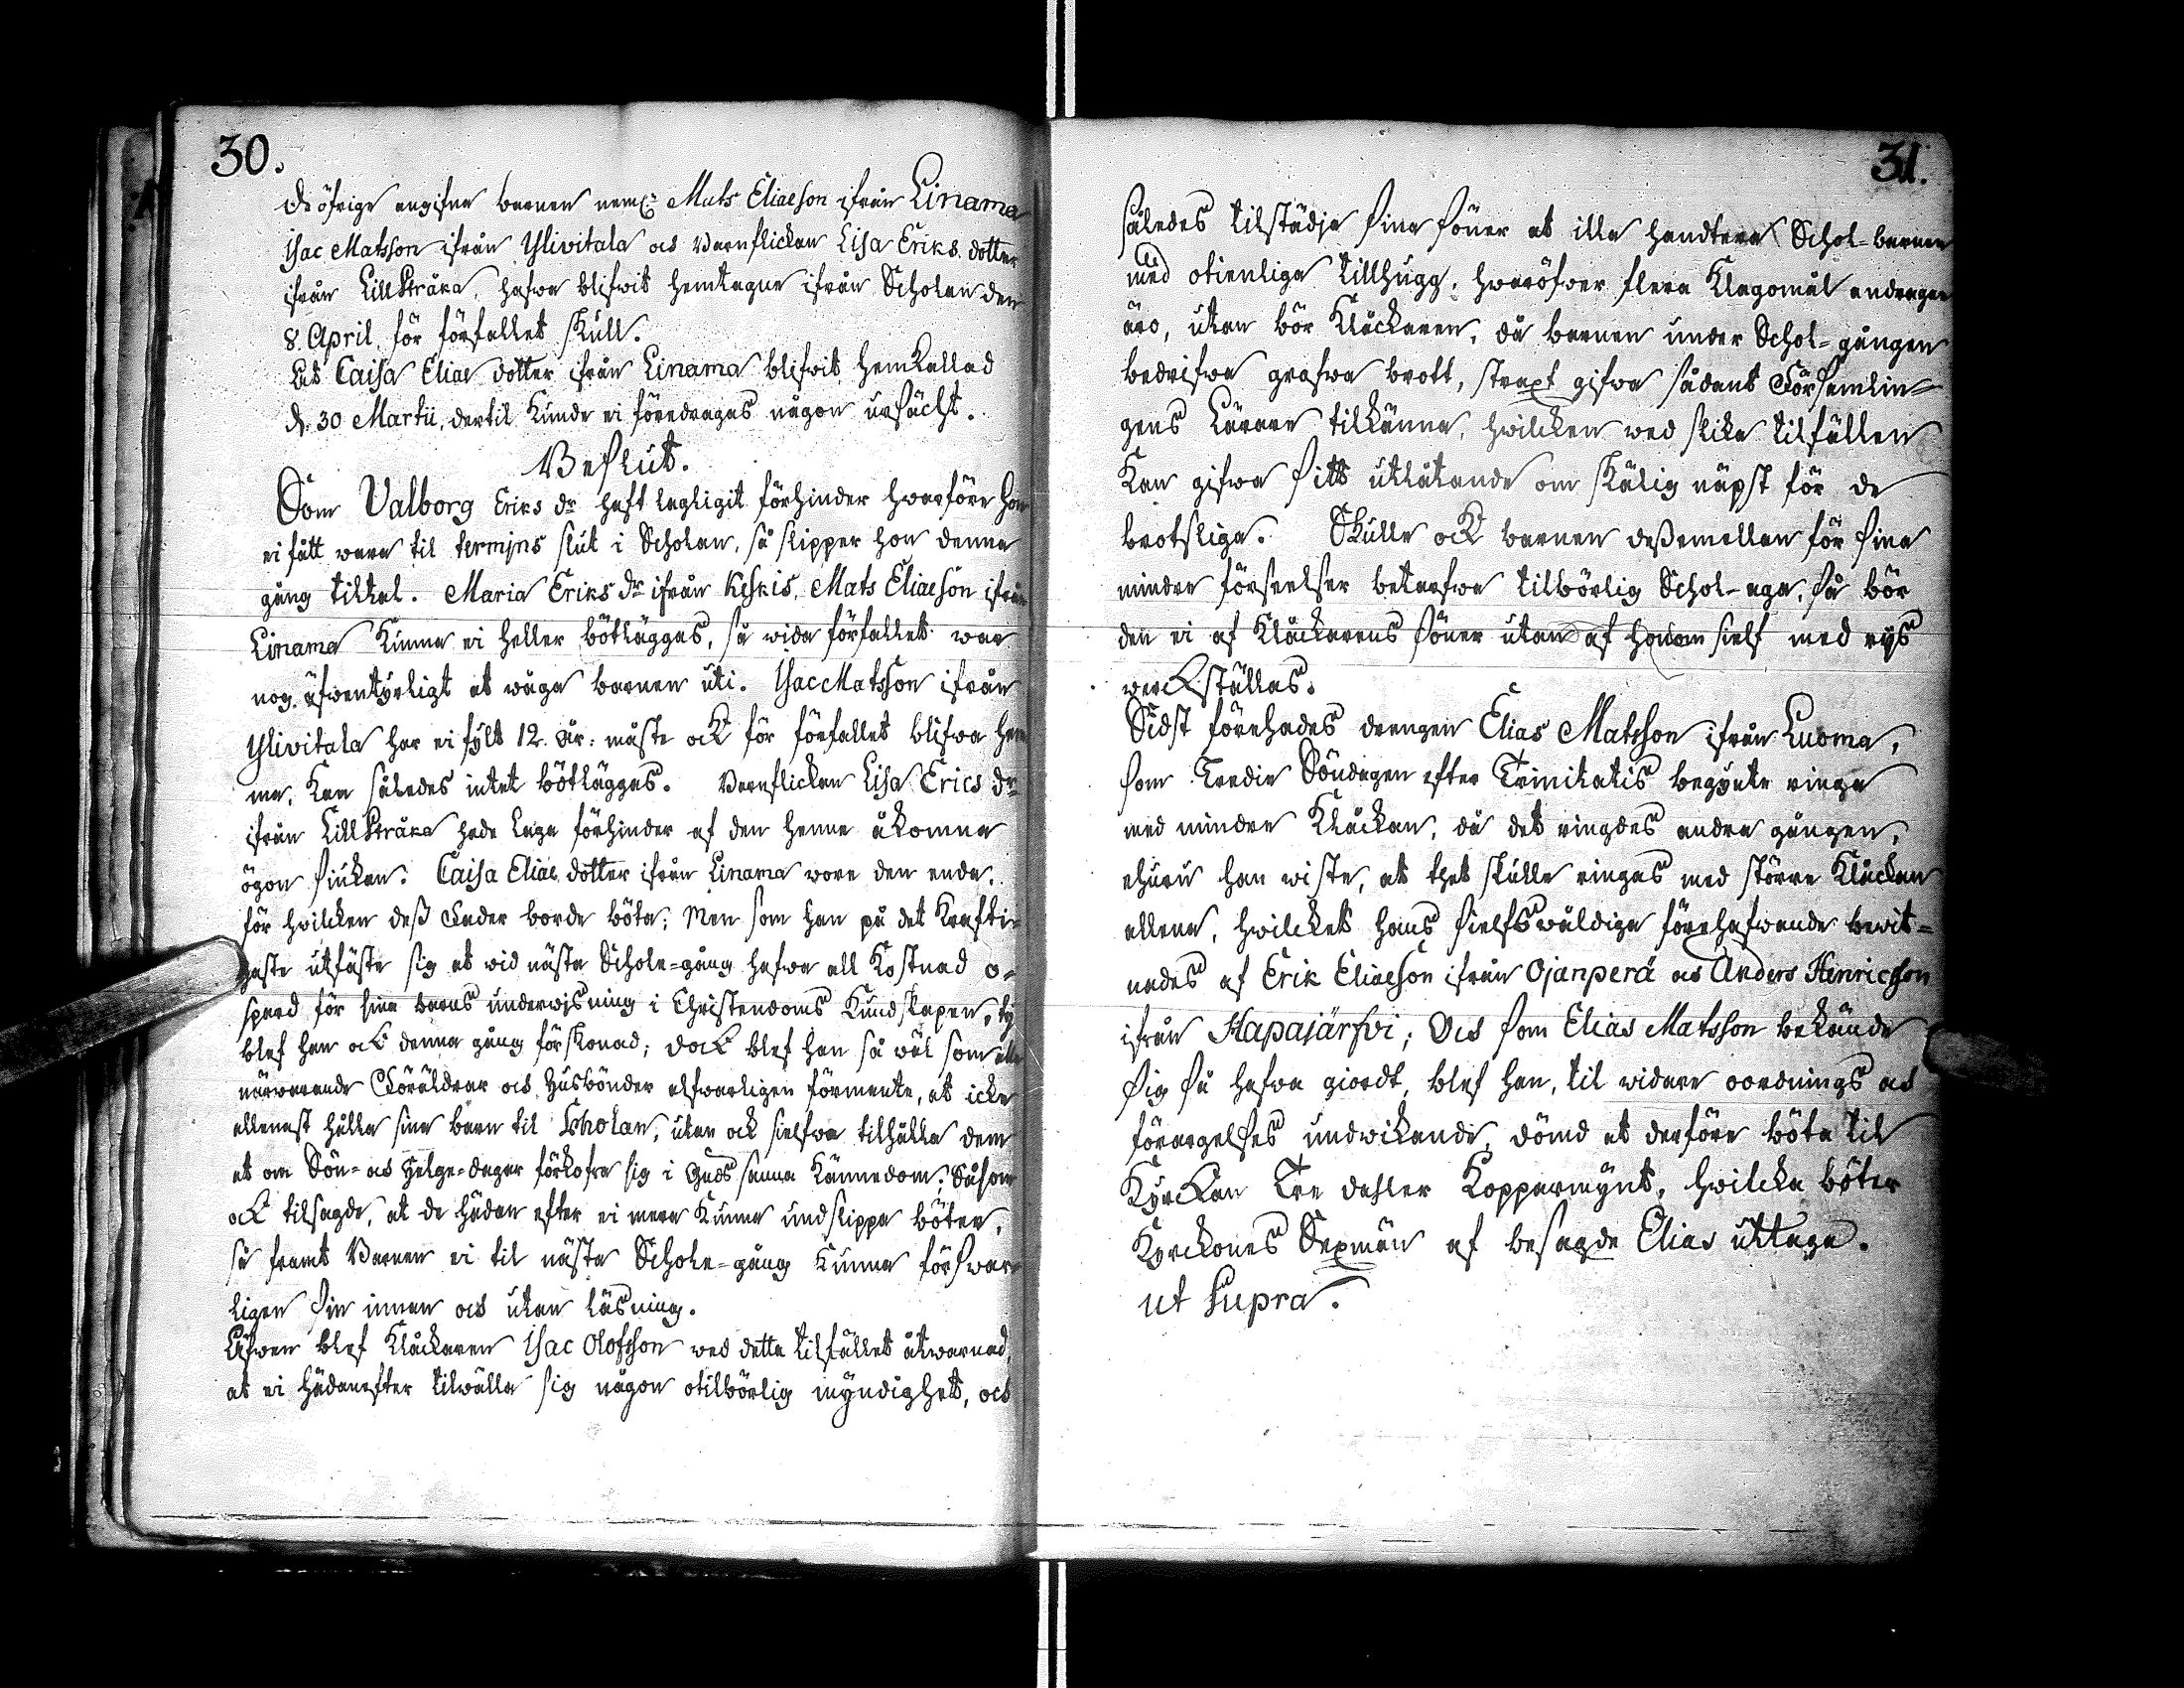 30.
De öfrige angifne barnen neml: Mats Eliaeson ifrån Linama
Isac Matsson ifrån Ylivitala och Barnflickan Lisa Eriks dotter
ifrån LillStråka, hafwa blifwit hemtagne ifrån Scholan den
8 April, för förfallet skull.
At Caisa Eliae dotter ifrån Linama blifwit hemkallad
d. 30 Martii, dertil kunde ei föredragas någon ursächt.
Beslut.
Som Valborg Eriks dr haft lagligit förhinder hwarföre hon
ei fått wara til termins slut i Scholan, så slipper hon denna
gång tiltal. Maria Eriks dr ifrån Keskis, Mats Eliaeson ifrån
Linama kunna ei heller bötläggas, så wida förfallet war
nog äfwentyrligt at wåga barnen uti. Isac Matsson ifrån
Ylivitala har ei fylt 12. år: måste ock för förfallet blifwa hem
ma, kan således intet bötläggas. Barnflickan Lisa Erics dr
ifrån LillStråka hade laga förhinder af den henne åkomna
ögon siukan. Caisa Eliae dotter ifrån Linama wore den enda,
för hwilcken deß Fader borde böta; Men som han på det krafti-
gaste utfäste sig at wid nästa Schole-gång hafwa all kostnad o-
spard för sina barns underwisning i Christendoms kundskapen, ty
blef han ock denna gång förskonad; dock blef han så wäl som alla
närwarande Föräldrar och Husbönder alfwarligen förmente, at icke
allenast hålla sina barn til Scholan, utan ock sielfwa tilhålla dem
at om Sön- och Helge-dagar förkofra sig i Guds sanna kännedom: Såsom
ock tilsagde, at de hädan efter ei mera kunna undslippa böter,
så framt Barnen ei til nästa Schole-gång kunna förswar-
ligen sin innan och utan läsning.
Äfwen blef Klåckaren Isac Olofsson wed detta tilfället åtwarnad,
at ei hädanefter tilwälla sig någon otilbörlig myndighet, och
31.
således tilstädja sina söner at illa handtera Schol-barnen
med otienliga tillhugg, hwaröfwer flera Klagomål andragne
äro, utan bör Klåckaren, då barnen under Schol-gången
bedrifwa grofwa brott, straxt gifwa sådant Församlin-
gens Lärare tilkänna, hwilcken wed slika tilfällen
kan gifwa sitt utlåtande om skälig näpst för de
brotsliga. Skulle ock barnen deßemellan för sina
mindre förseelser betarfwa tilbörlig Schol-aga, så bör
den ei af Klåckarens söner utan af honom sielf med rijs
werckställas.
Sidst förehades drengen Elias Matsson ifrån Luoma,
som Tredie Söndagen efter Trinitatis begynte ringa
med mindre Klåckan, då det ringdes andra gången,
ehuru han wiste, at thet skulle ringas med större Klåckan
allena, hwilckets hans sielfswåldiga förehafwande bewit-
nades af Erik Eliaeson ifrån Ojanperä och Anders Henricsson
ifrån Hapajärfvi; Och som Elias Matsson bekände
sig så hafwa giordt, blef han, til widare oordnings och
förargelses undwikande, dömd at derföre böta til
Kyrckan Tre daler Kopparmynt, hwilcka böter
Kyrckones Sexmän af besagde Elias uttaga.
ut supra.